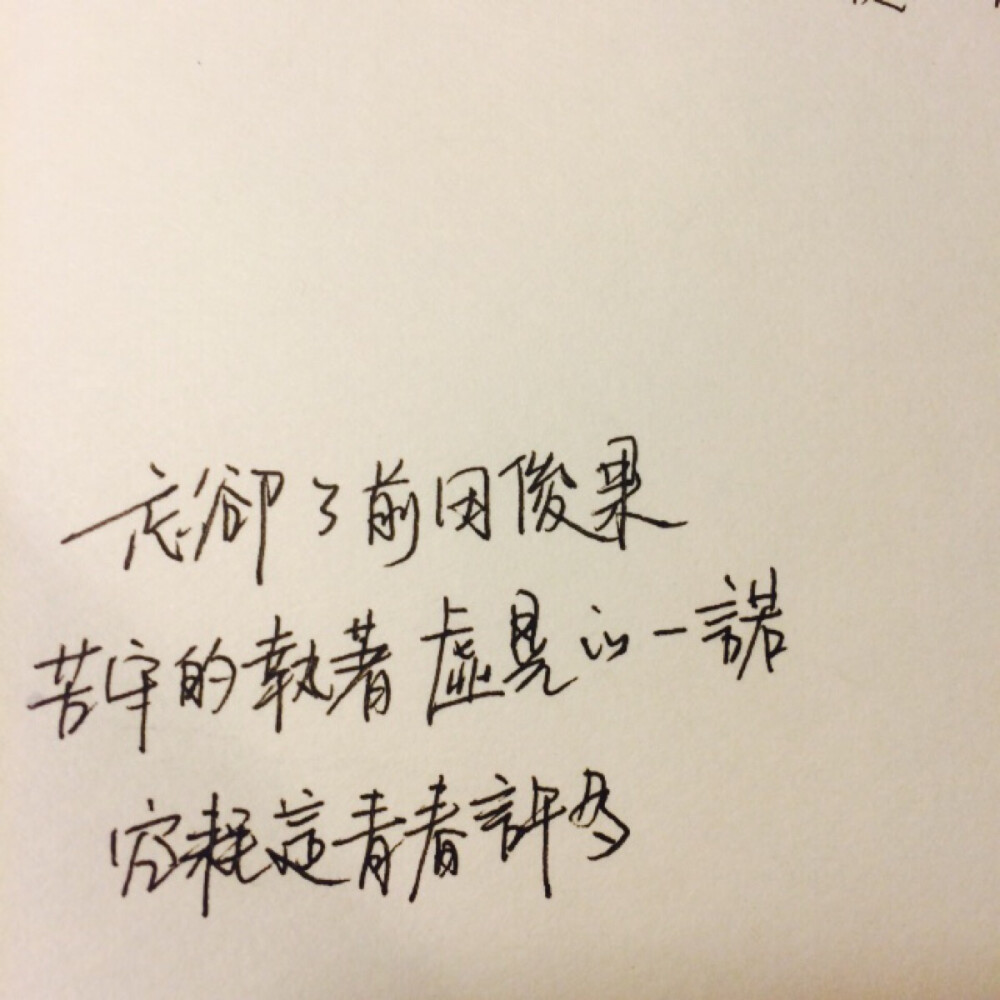 忘卻了前因後果
苦守的執著 虛晃的一諾
空耗這青春許多